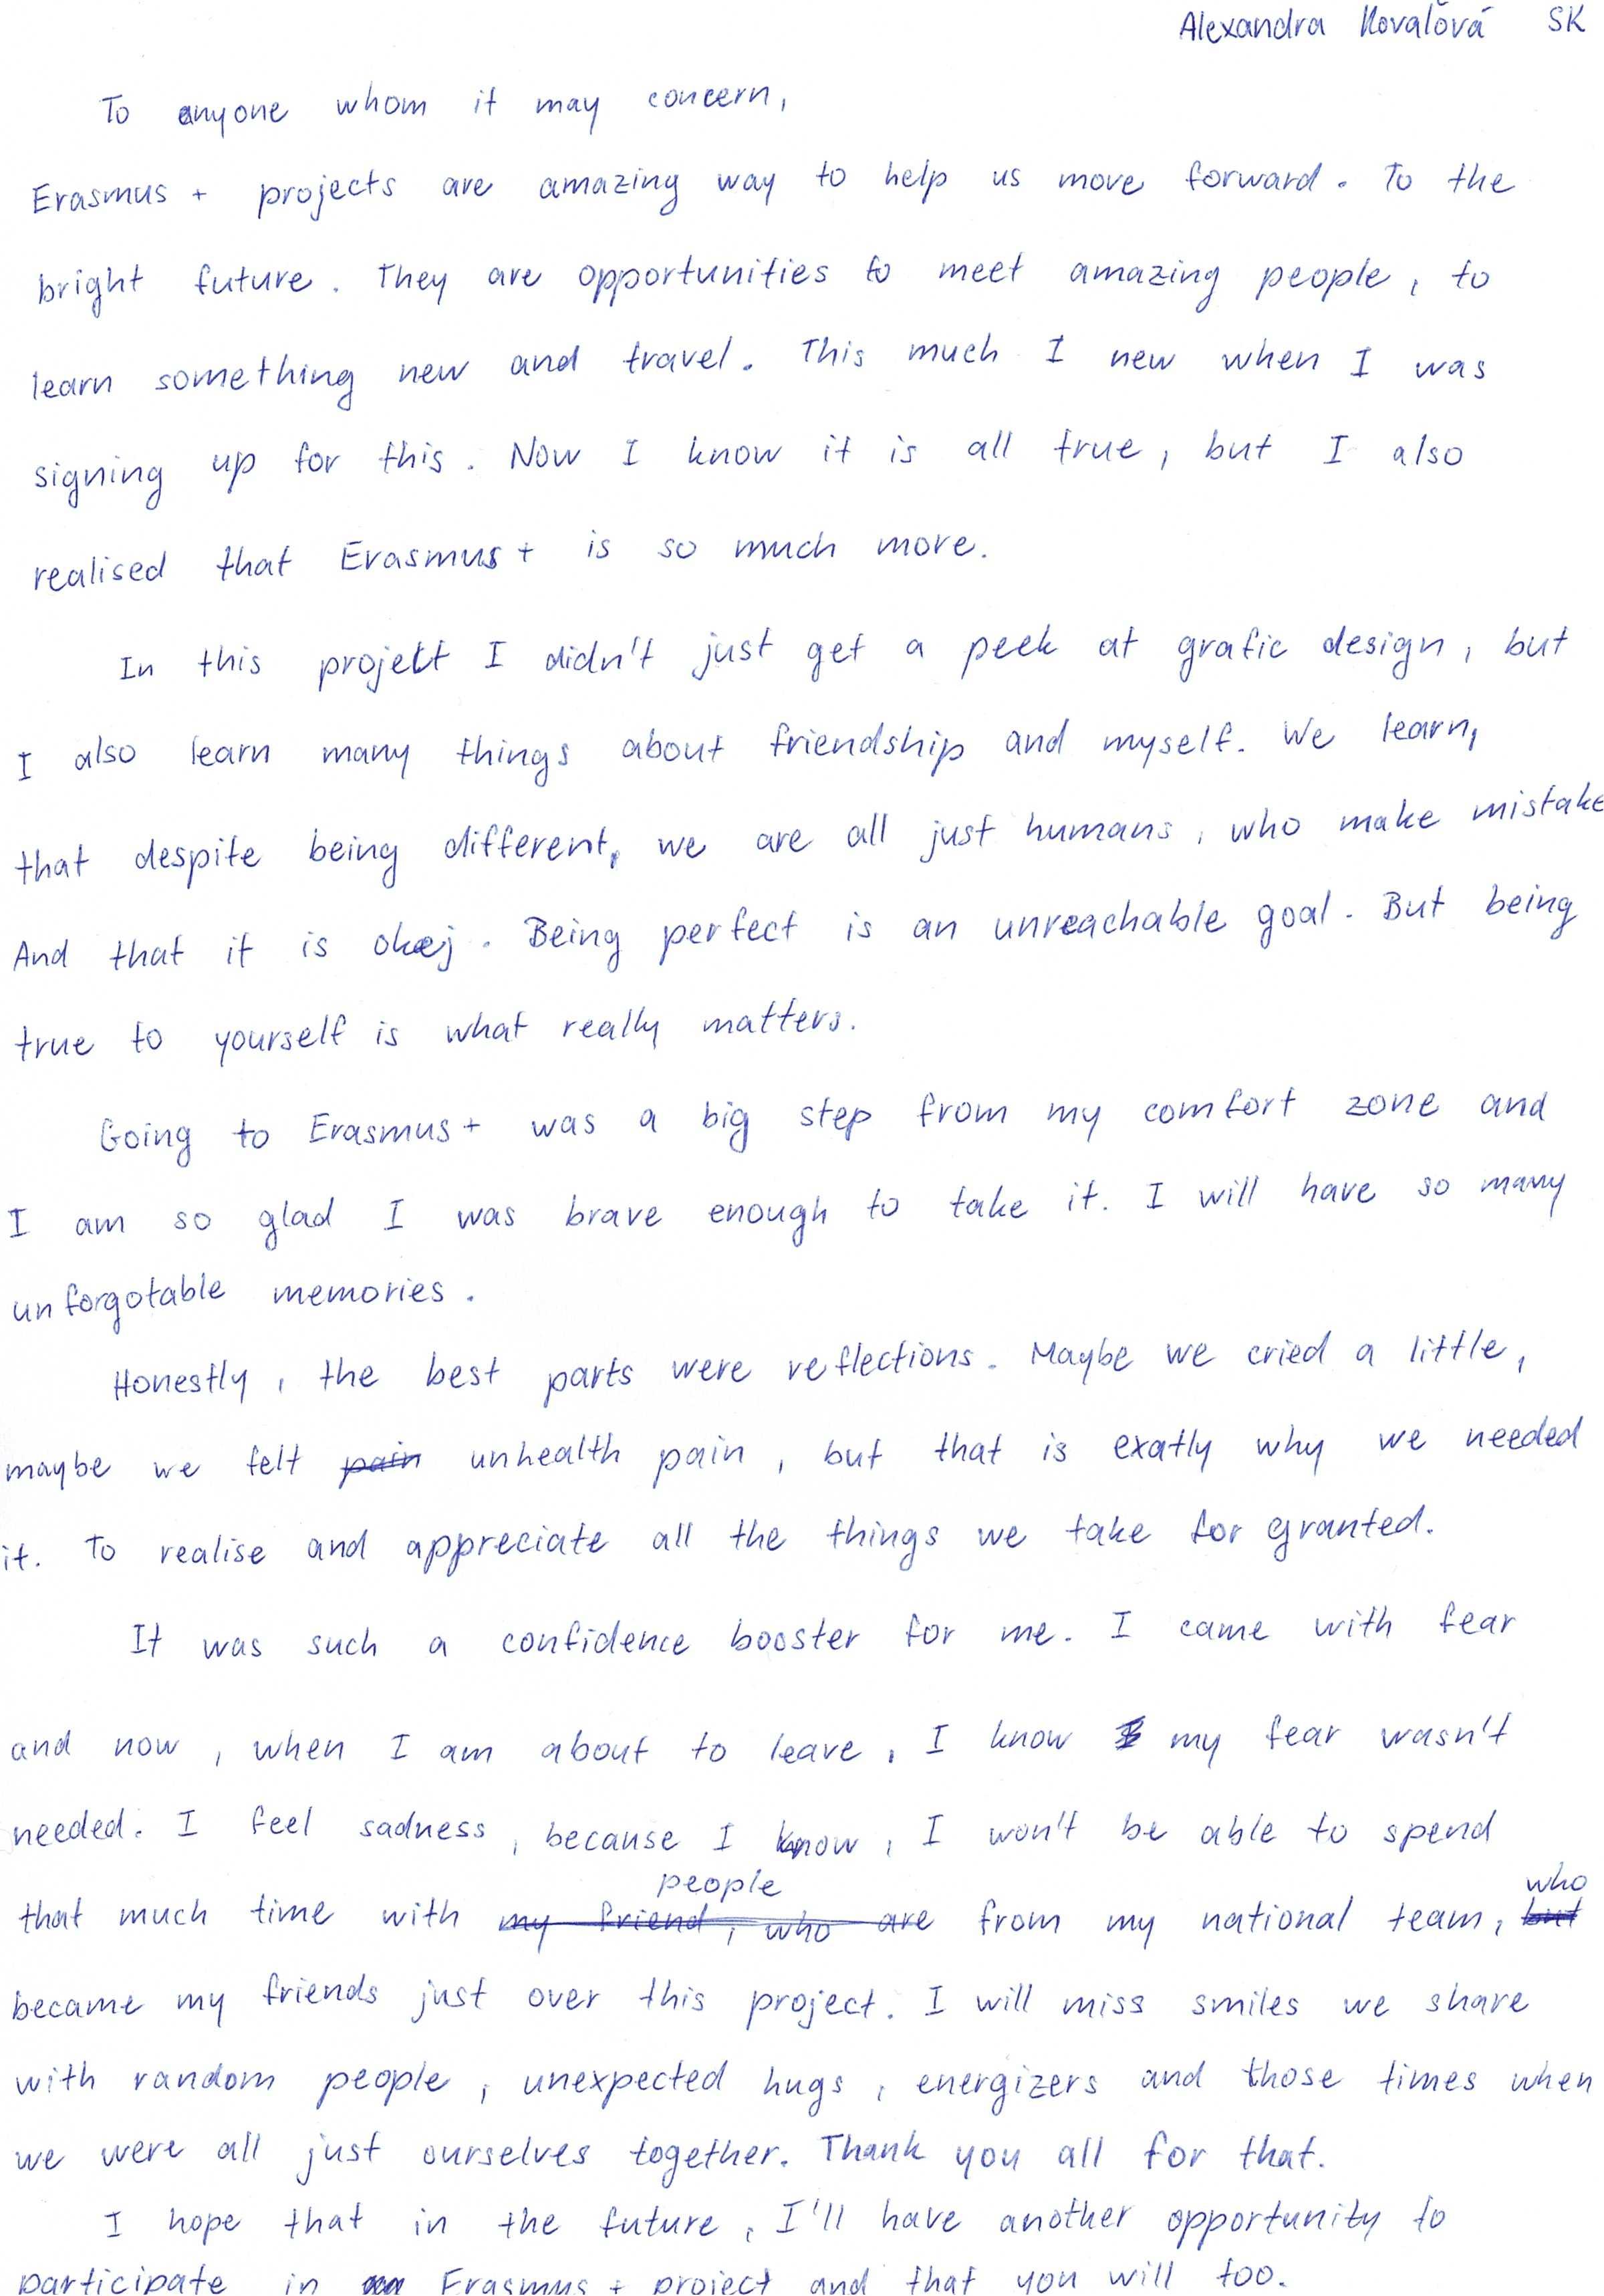 Alexandra Kovaľová SK
To anyone whom it may concern,
Erasmus + projects are amazing way to help us move forward. To the
bright future. They are opportunities to meet amazing people, to
learn something new and travel. This much I new when I was
signing up for this. Now I know it is all true, but I also
realised that Erasmus+ is so much more.
In this project I didn't just get a peek at grafic design, but
I also learn many things about friendship and myself. We learn,
that despite being different, we are all just humans, who make mistake
And that it is okej. Being perfect is an unreachable goal. But being
true to yourself is what really matters.
Going to Erasmus+ was a big step from my comfort zone and
I am so glad I was brave enough to take it. I will have so many
unforgotable memories.
Honestly, the best parts were reflections. Maybe we cried a little,
maybe we felt pain unhealth pain, but that is exatly why we needed
it. To realise and appreciate all the things we take for granted.
It was such a confidence booster for me. I came with fear
and now, when I am about to leave, I know my fear wasn't
needed. I feel sadness, because I know, I won't be able to spend
people who
that much time with my friend, who are from my national team, but
became my friends just over this project. I will miss smiles we share
with random people, unexpected hugs, energizers and those times when
we were all just ourselves together. Thank you all for that.
I hope that in the future, I'll have another opportunity to
participate in Erasmus + project and that you will too.